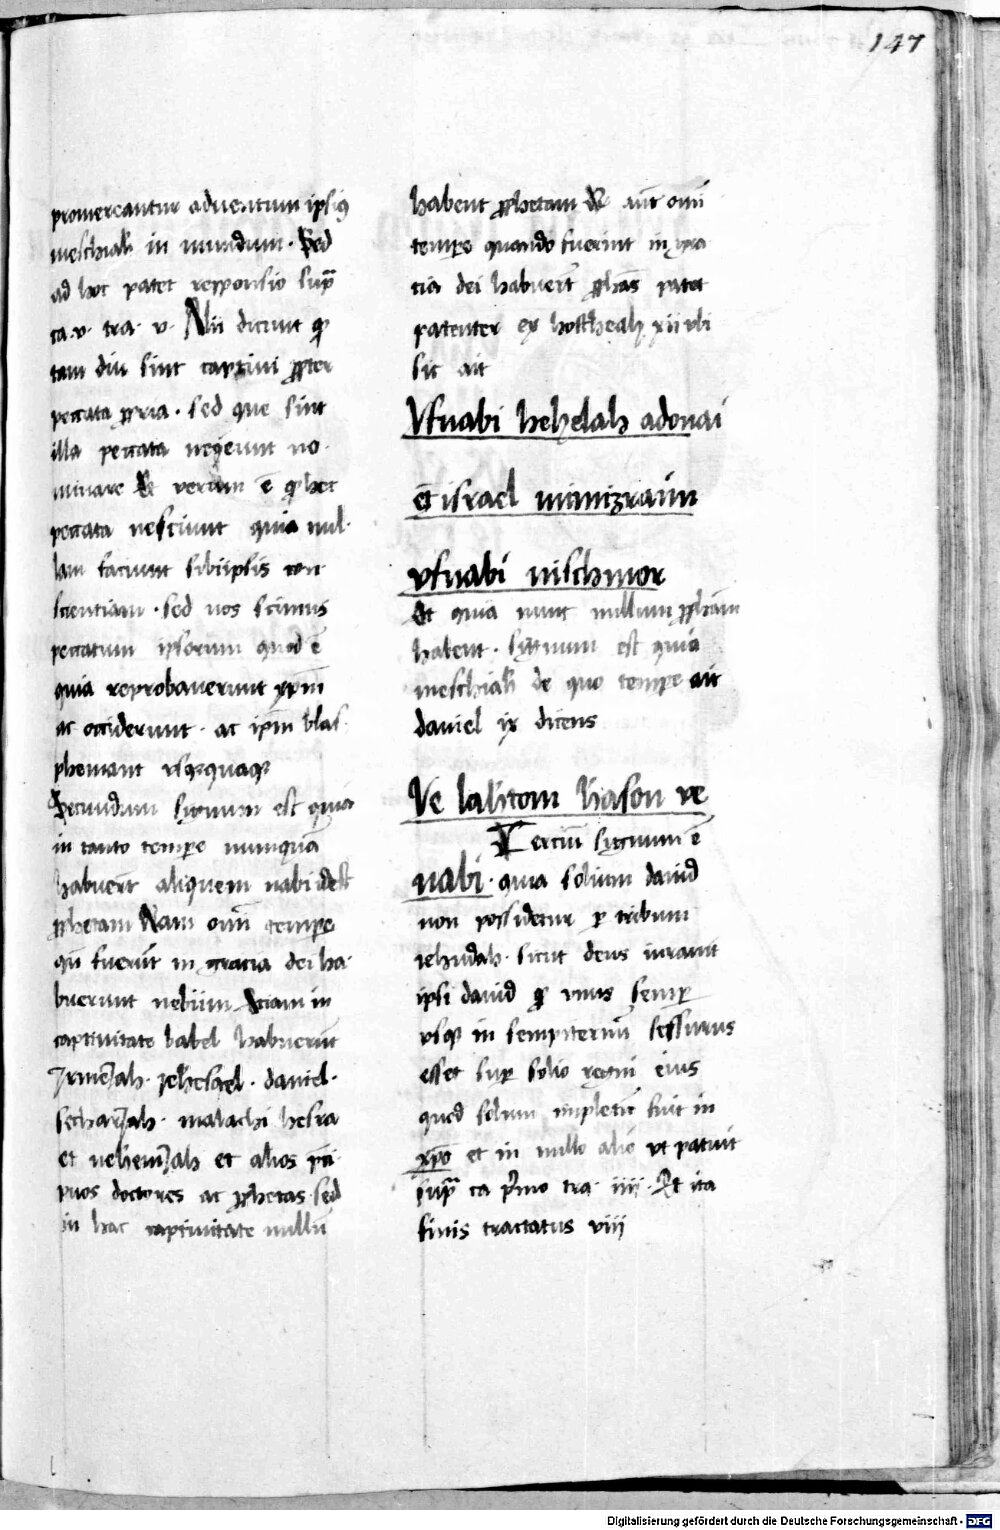 147
promereantur adventum ipsiꝰ
meschiah in mundum · Sed
ad hoc patet responsio supͣ
ca · v · tra · v · Alii dicunt qͥ
tam diu sint captivi ꝓpter
peccata ꝓpria · sed que sint
illa peccata neqeunt no-
minare Et verum ē qͥ hec
peccata nesciunt quia nul-
lam faciunt sibiipsis con
scientiam · sed nos scimus
peccatum ipsorum quod ē
quia reprobaverunt xpm̄
ac occiderunt · ac ipm̄ blas-
phemant usqꝫquaqꝫ
Secundum signum est quia
in tanto tempore nunquā
habuerūt aliquem nabi idest
ꝓphetam Nam omī tempe
qn̄ fuerūt in gracia dei ha-
buerunt nebiim Etiam in
captivitate babel habuerūt
Jrmeiah · Jehesqel · daniel ·
sechariah · malachi hesra
et nehemiah et alios
doctores ac ꝓphetas · sed
in hac captivitate nullū
habent ꝓphetam Et aūt omī
tempore quando fuerint in gra
cia dei habuerūt ꝓphās patet
patenter ex hoscheah xii ubi
sic ait
Vfnabi hehelah adonai
et israel mimizraim
vfnabi nischmor
Et quia nunc nullum ꝓphām
habent · signum est quia
meschiah de quo tempe ait
daniel ix dicens
Ve lahtom hason ve
nabi · Terciū signum ē
quia solium david
non possidetur per tribum
iehudah · sicut deus iuravit
ipsi david qͥ unus semper
usqꝫ in sempiternū sessurus
esset super solio regni eius
quod solum impletū fuit in
xpo et in nullo alio ut patuit
supͣ ca primo tra · iiii · Et ita
finis tractatus viii
Digitalisierung gefördert durch die Deutsche Forschungsgemeinschaft - DFG